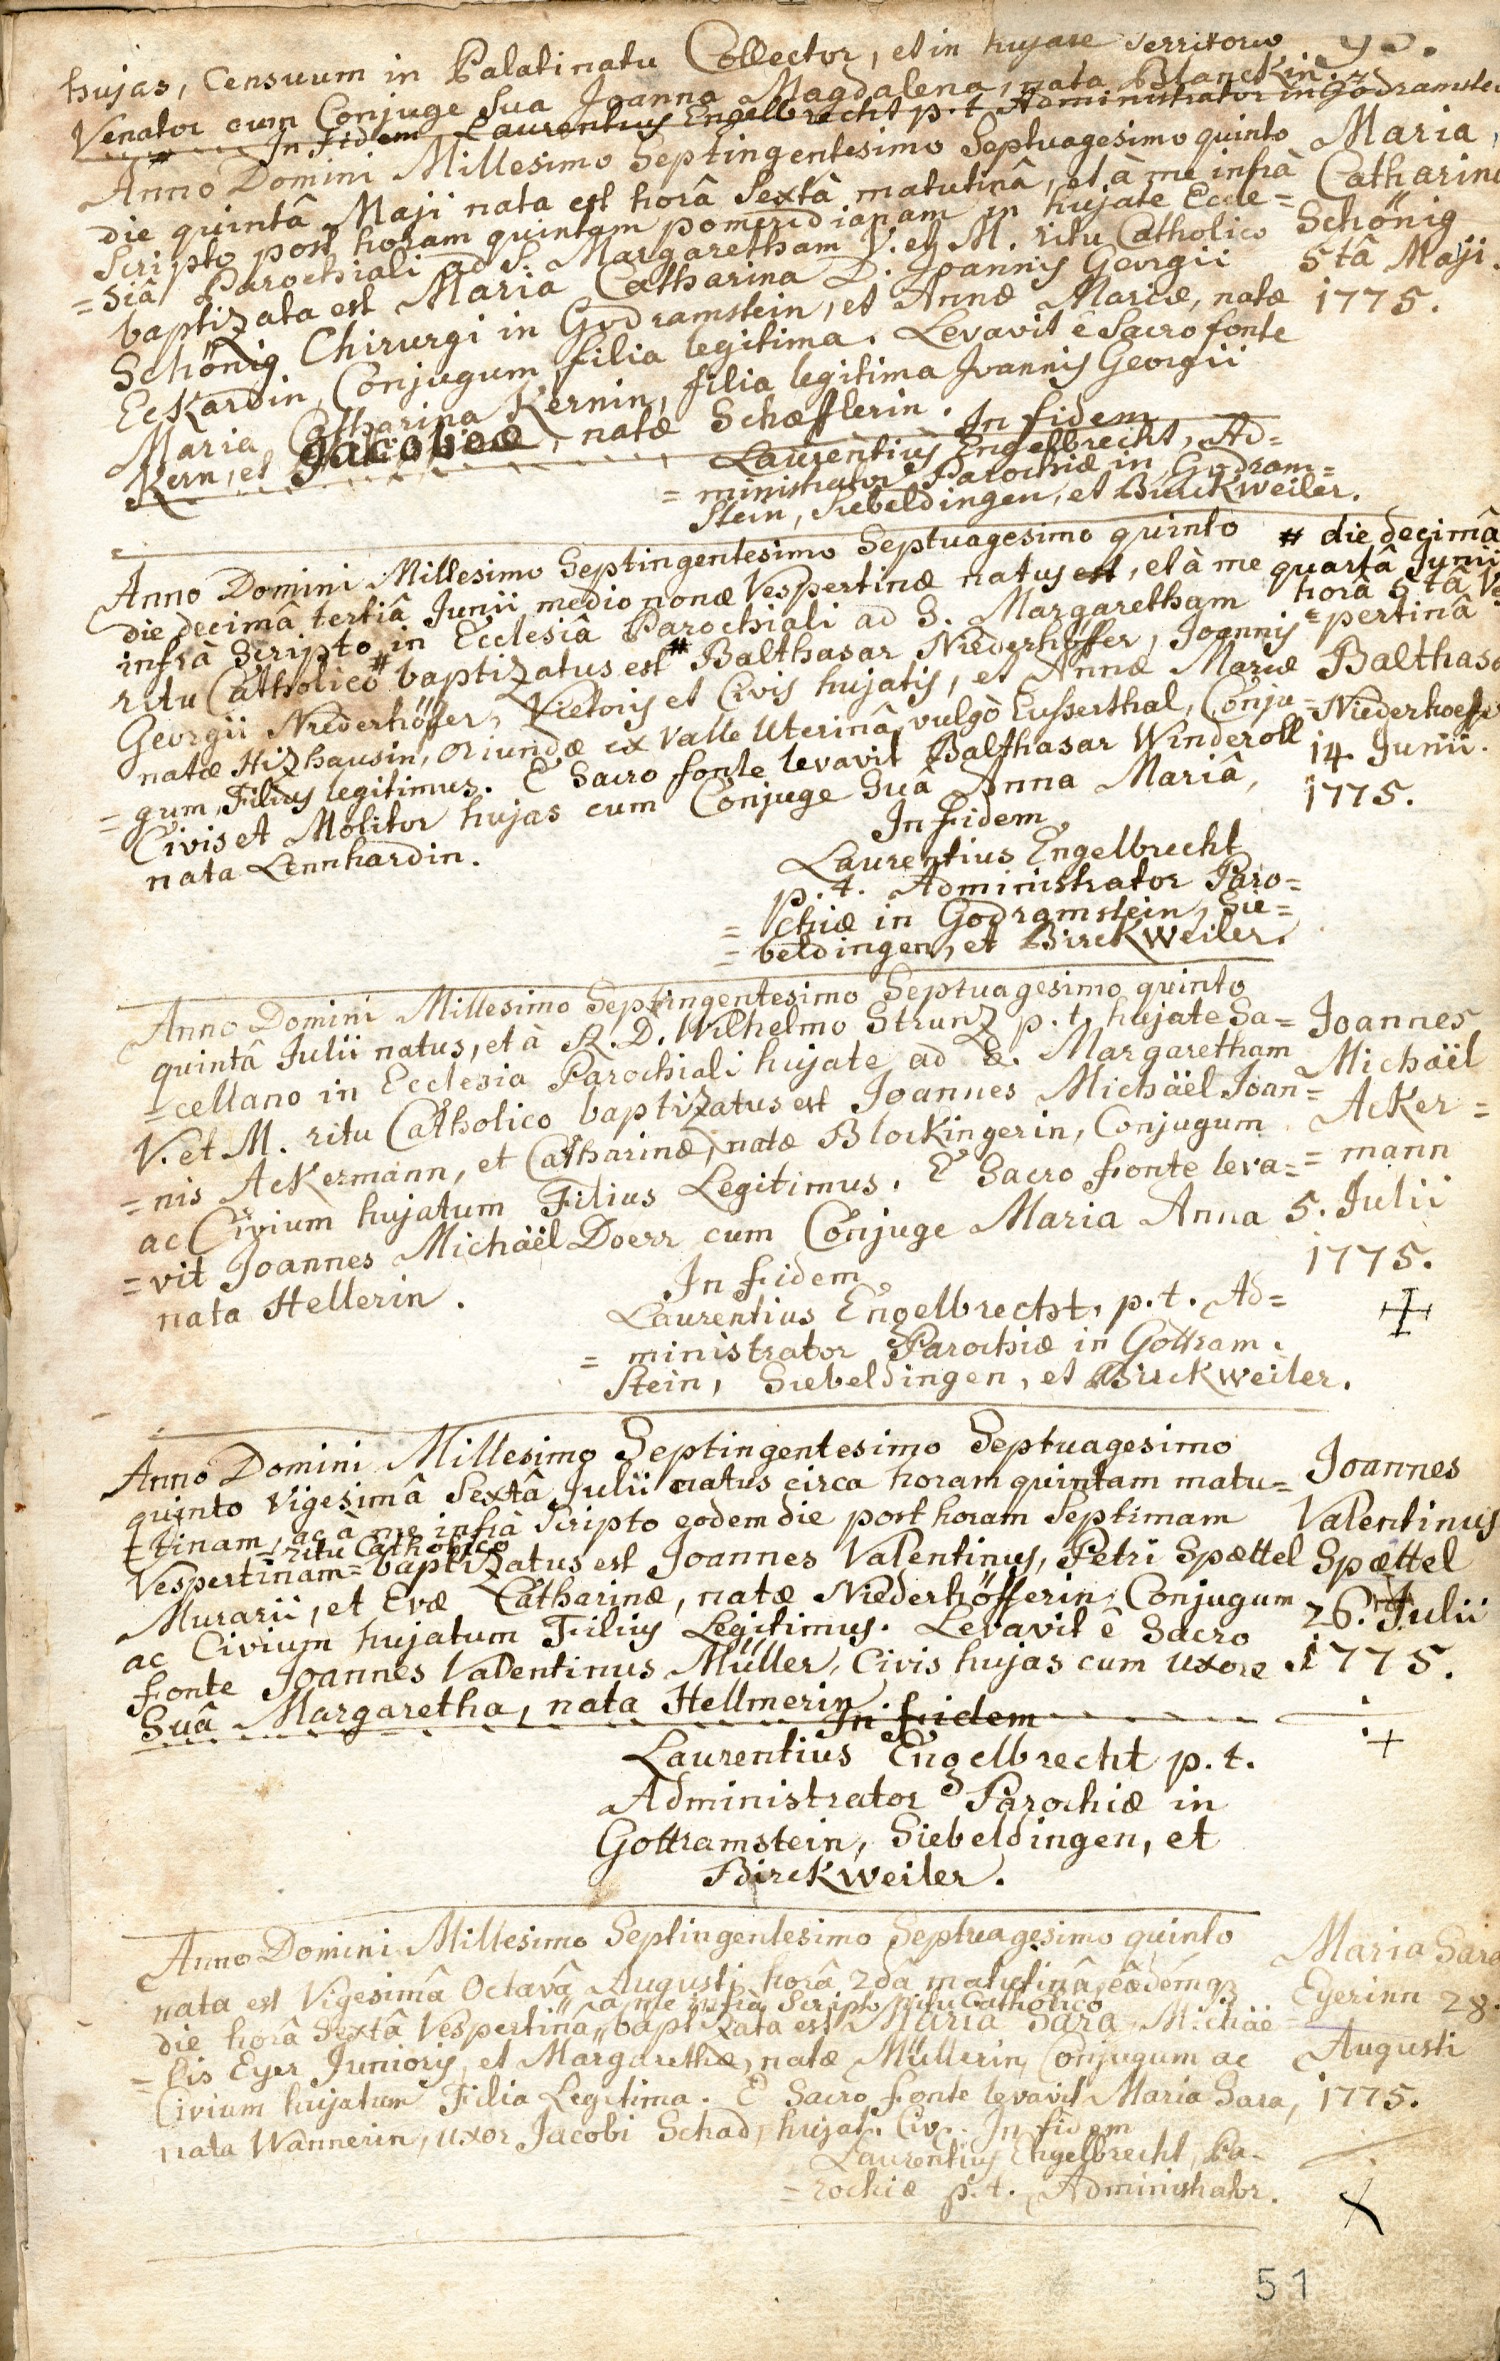 hujas, Censuum in Palatinatu Collector, et in hujate Territorio
Venator cum Conjuge sua Joanna Magdalena, nata Blanckin.
In fidem Laurentius Engelbrecht p. t. Administrator in Godramstein
Anno Domini Millesimo Septingentesimo Septuagesimo quinto
die quintâ Maji nata est horâ Sextâ matutinâ, et à me infrà
Scripto post horam quintam pomeridianam in hujate Eccle=
=siâ Parochiali ad S. Margaretham V. et M. ritu Catholico
baptizata est Maria Catharina D. Joannis Georgii
Schönig Chirurgi in Godramstein, et Annæ Mariæ, natæ
Eckardin, Conjugum filia legitima. Levavit è Sacro fonte
Maria Catharina Kernin, filia legitima Joannis Georgii
Kern, et Jacobeæ, natæ Schæfflerin. In fidem
Laurentius Engelbrecht, Ad=
=ministrator Parochiæ in Godram=
Stein, Siebeldingen, et Birckweiler.
Maria
Catharina
Schönig
5tâ Maji.
1775.
Anno Domini Millesimo Septingentesimo Septuagesimo quinto
die decimâ tertiâ Junii medio nonæ Vespertinæ natus est, et à me
infrà Scripto in Ecclesiâ Parochiali ad S. Margaretham
ritu Catholico # baptizatus est # Balthasar Niederhöffer, Joannis
Georgii Niederhöffer, Vietoris et Civis hujatis, et Annæ Mariæ
natæ Hizhausin, oriundæ ex Valle Uterinâ vulgò Eusserthal, Conju=
=gum, Filius legitimus. E Sacro fonte levavit Balthasar Winderoll
Civis et Molitor hujas cum Conjuge Suâ Anna Mariâ,
nata Lennhardin.
In fidem
Laurentius Engelbrecht
p. t. Administrator Paro=
=chiæ in Godramstein, Sie=
=beldingen, et Birckweiler.
# die decimâ
quartâ Junii
horâ 5tâ Ves
=pertinâ
Balthasar
Niederhoeffer
14 Junii.
1775.
Anno Domini Millesimo Septingentesimo Septuagesimo quinto
quintâ Julii natus, et à R. D. Wilhelmo Strunz p. t. hujate Sa=
=cellano in Ecclesia Parochiali hujate ad S. Margaretham
V. et M. ritu Catholico baptizatus est Joannes Michäel Joan=
=nis Ackermann, et Catharinæ, natæ Blockingerin, Conjugum
ac Civium hujatum Filius Legitimus. E Sacro fonte leva=
=vit Joannes Michäel Doerr cum Conjuge Maria Anna
nata Hellerin.
In fidem
Laurentius Engelbrecht, p. t. Ad=
=ministrator Parochiæ in Gottram.
Stein, Siebeldingen, et Birckweiler.
Joannes
Michäel
Acker=
=mann
5. Julii
1775.
Anno Domini Millesimo Septingentesimo Septuagesimo
quinto Vigesimâ Sextâ Julii natus circa horam quintam matu=
=tinam, ac à me infrà Scripto eodem die post horam Septimam
ritu Catholico
Vespertinam = baptizatus est Joannes Valentinus, Petri Spættel
Murarii, et Evæ Catharinæ, natæ Niederhöfferin, Conjugum
ac Civium hujatum Filius Legitimus. Levavit è Sacro
fonte Joannes Valentinus Müller, Civis hujas cum uxore
Suâ Margaretha, nata Hellmerin.
In fidem
Laurentius Engelbrecht p. t.
Administrator Parochiæ in
Gottramstein, Siebeldingen, et
Birckweiler.
Joannes
Valentinus
Spættel
26. Julii
1775.
Anno Domini Millesimo Septingentesimo Septuagesimo quinto
nata est Vigesimâ Octavâ Augusti horâ 2dâ matutinâ, eâdemq3
à me infrà Scripto ritu Catholico
die horâ Sextâ Vespertinâ, baptizata est Maria Sara, Michäe=
=lis Eyer Junioris, et Margarethæ, natæ Müllerin, Conjugum ac
Civium hujatum Filia Legitima. E Sacro fonte levavit Maria Sara,
nata Wannerin, uxor Jacobi Schad, hujat. Civ. In fidem
Laurentius Engelbrecht, Pa=
=rochiæ p. t. Administrator.
Maria Sara
Eyerinn 28.
Augusti
1775.
51